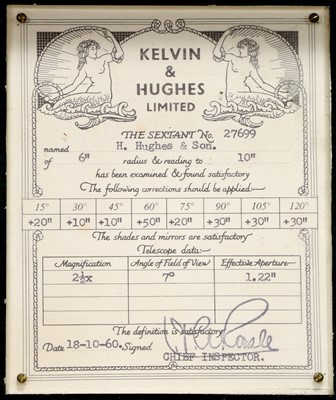 KELVIN
&
HUGHES
LIMITED
THE SEXTANT No. 27699
named H. Hughes & Son.
of 6" radius & reading to 10"
has been examined & found satisfactory
The following corrections should be applied:
15° 30° 45° 60° 75° 90° 105° 120°
+20" +10" +10" +50" +20" +30" +30" +30"
The shades and mirrors are satisfactory
Telescope data:
Magnification Angle of Field of View Effective Aperture
2½x 7° 1.22"
The definition is satisfactory
Date 18-10-60. Signed
CHIEF INSPECTOR.